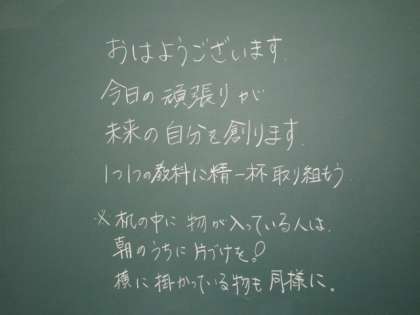 おはようございます.
今日の頑張りが
未来の自分を創ります.
1つ1つの教科に精一杯取り組もう.
※机の中に物が入っている人は、
朝のうちに片づけを!
横に掛かっている物も同様に。